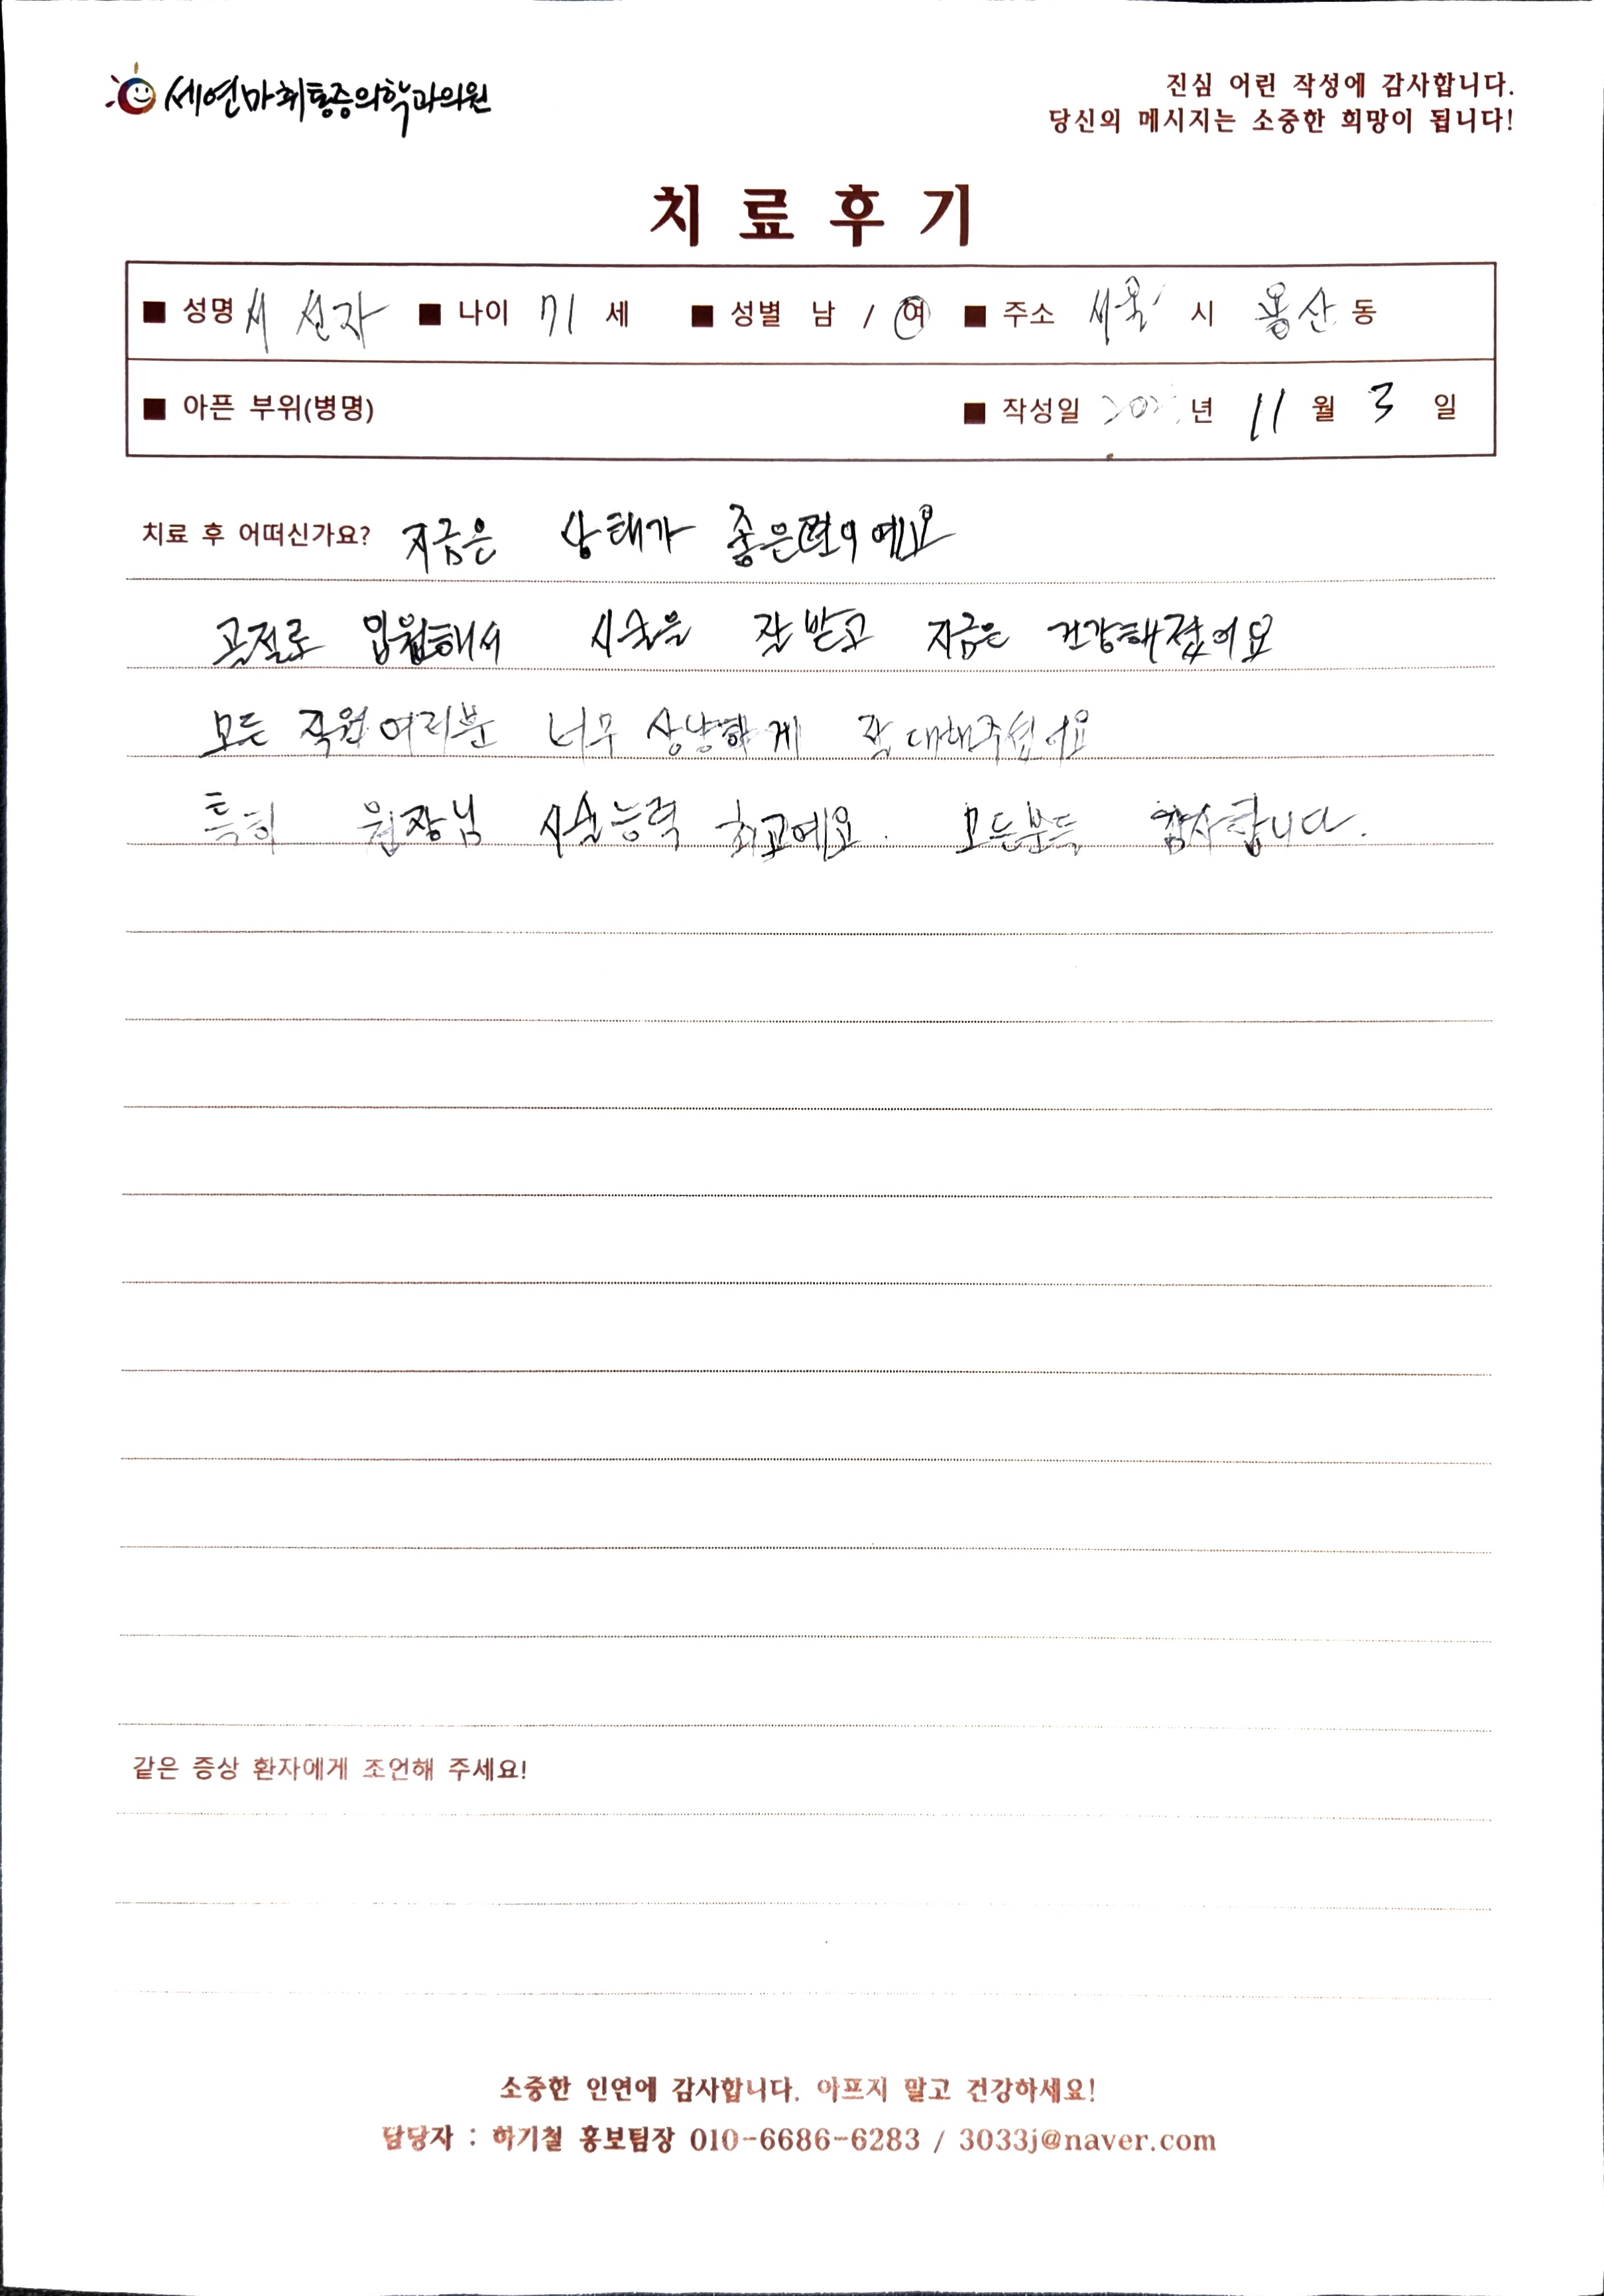 세연마취통증의학과의원
진심 어린 작성에 감사합니다.
당신의 메시지는 소중한 희망이 됩니다!
치료후기
■ 성명 서 선자 ■ 나이 71 세 ■ 성별 남 / 여 ■ 주소 서울 시 용산 동
■ 아픈 부위(병명) ■ 작성일 년 11 월 3 일
치료 후 어떠신가요? 지금은 상태가 좋은편이예요
골절로 입원해서 시술을 잘 받고 지금은 건강해졌어요
모든 직원 여러분 너무 상냥하게 잘 대해주셨어요
특히 원장님 시술능력 최고예요. 모든분들 감사합니다.
같은 증상 환자에게 조언해 주세요!
소중한 인연에 감사합니다. 아프지 말고 건강하세요!
담당자 : 하기철 홍보팀장 010-6686-6283 / 3033j@naver.com